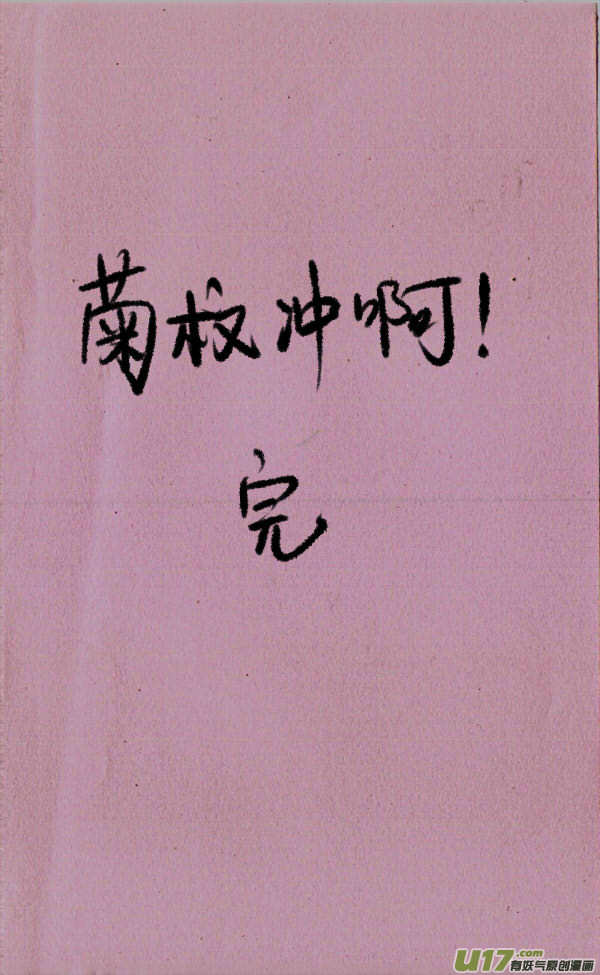 菊权冲啊!
完
U17.com
有妖气原创漫画